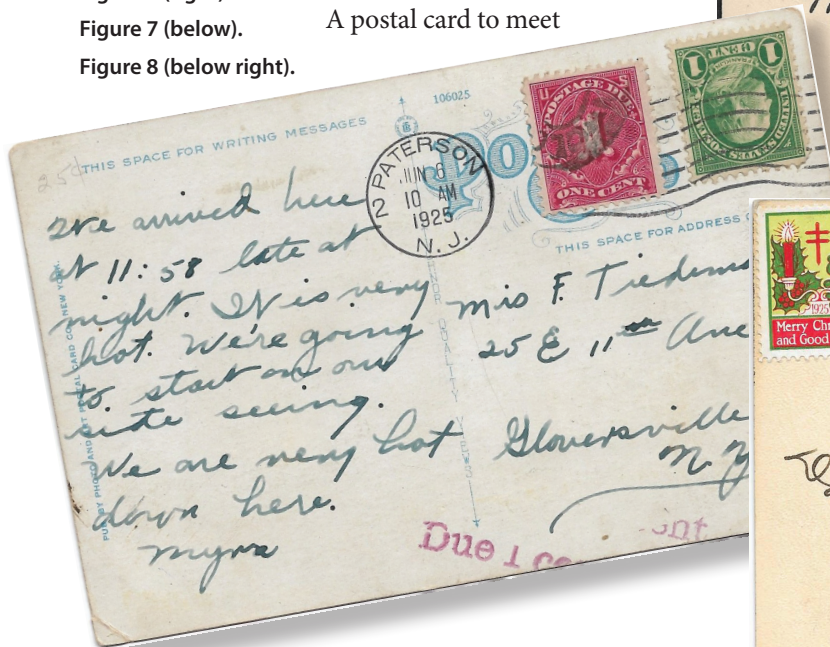 Figure 7 (below).
Figure 8 (below right).
A postal card to meet
106025
THIS SPACE FOR WRITING MESSAGES
25¢
PATERSON
2
JUN 6
10 AM
1925
N. J.
U S
POSTAGE DUE
ONE CENT
1 1
THIS SPACE FOR ADDRESS
We arrived here
at 11:58 late at
night. It is very
hot. We're going
to start on our
site seeing.
We are very hot
down here.
Myra
Miss F.
25 E 11th Ave
Gloversville
N.Y
Due 1 ent
1925
Merry Chr
and Good